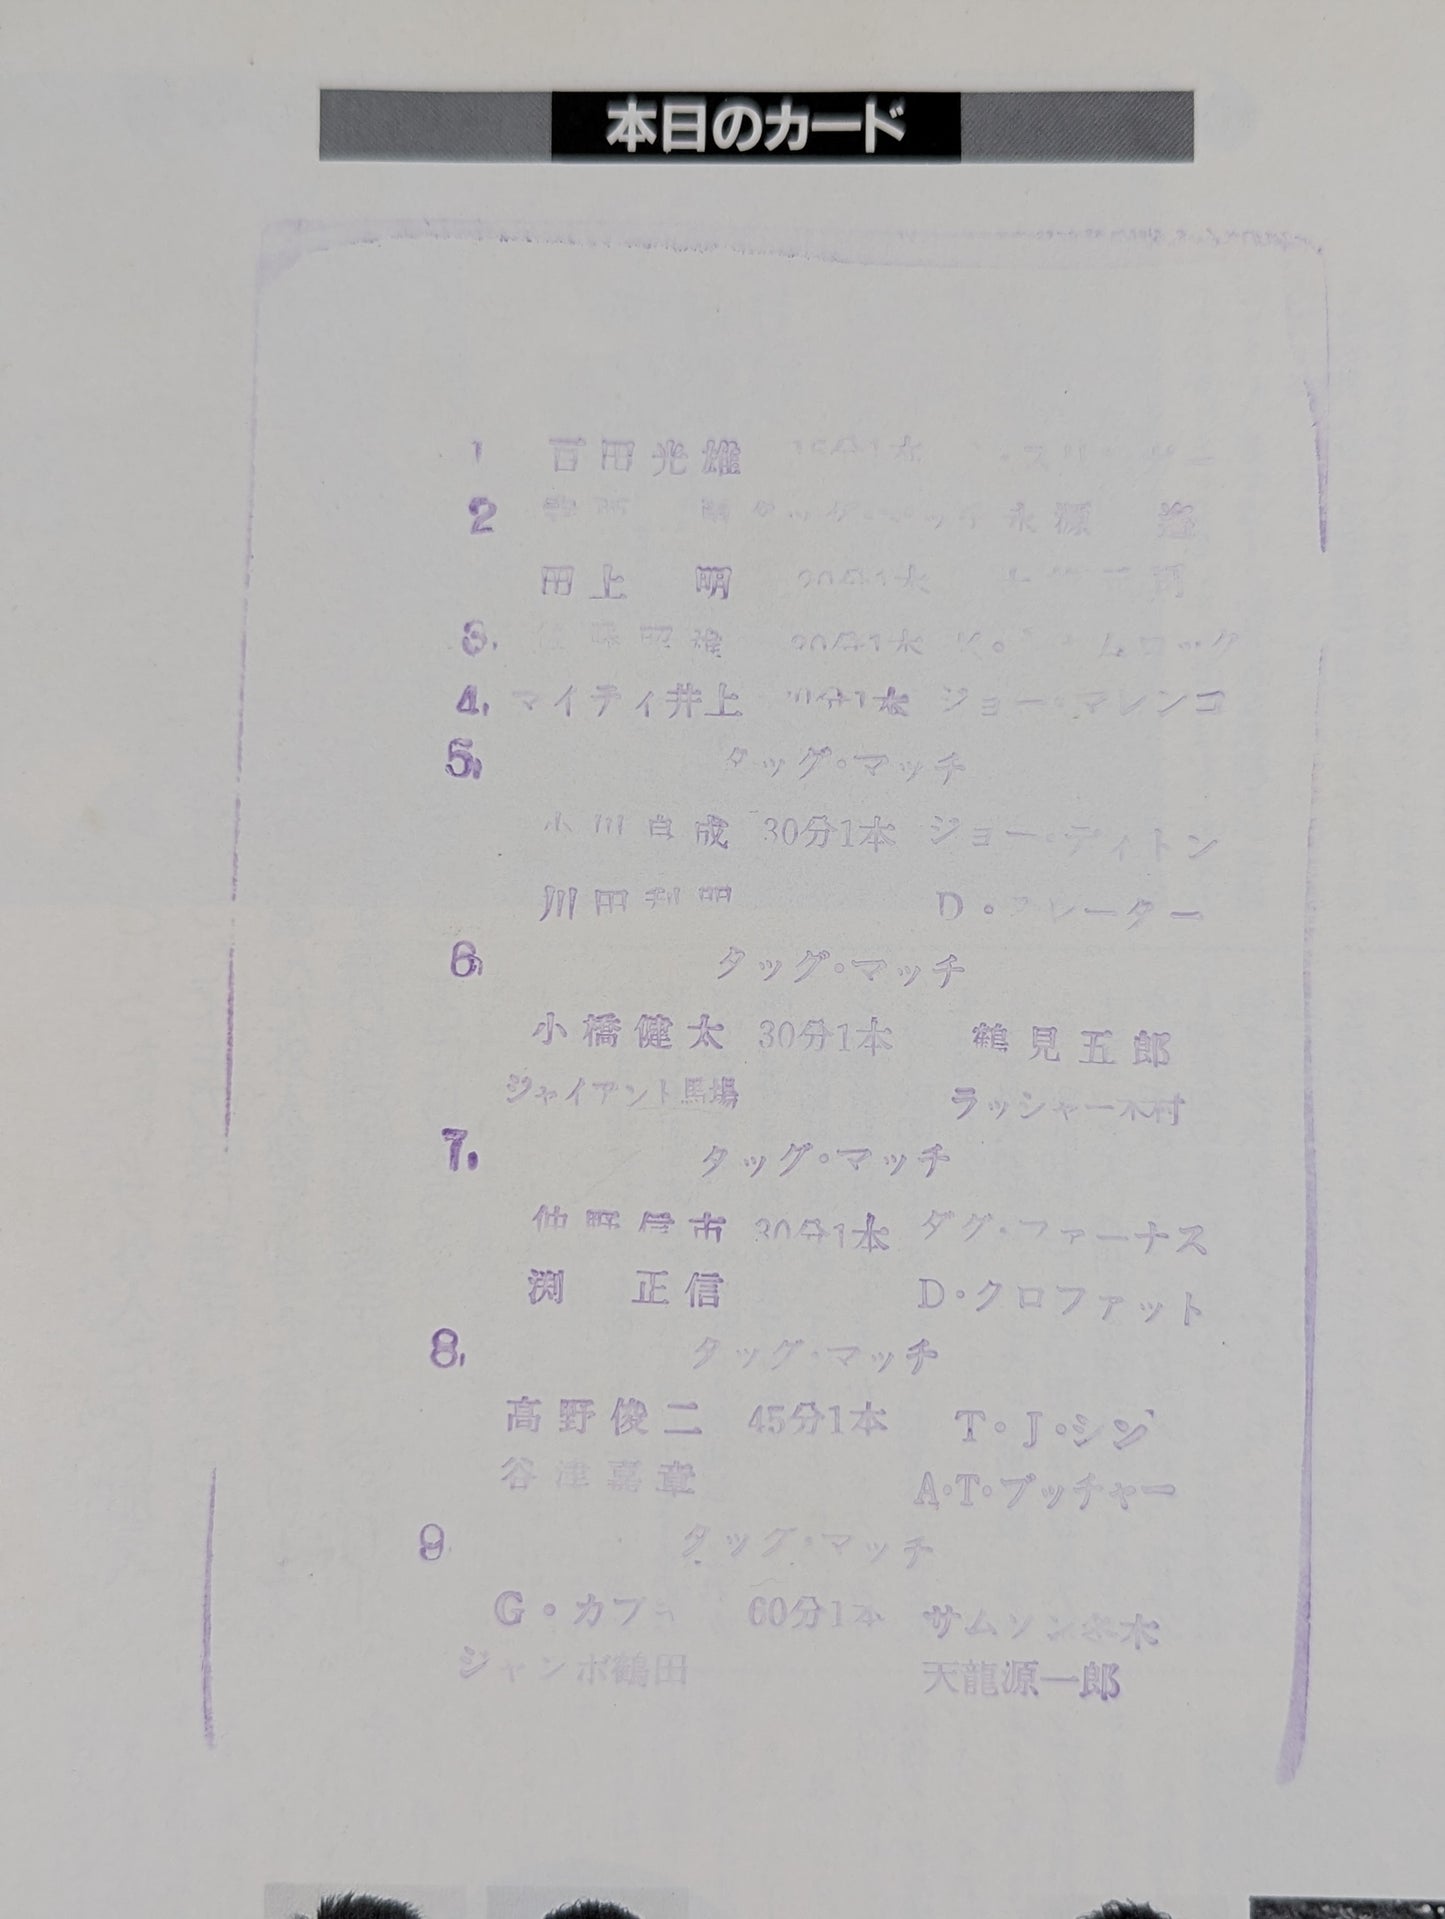 本日のカード
1 百田光雄 15分1本
2 タッグ・マッチ 永源 遙
田上 明 20分1本
3. 20分1本
4. マイティ井上 分1本 ジョー・マレンコ
5. タッグ・マッチ
小川良成 30分1本 ジョー・ディトン
川田利明 D・クレーター
6. タッグ・マッチ
小橋健太 30分1本 鶴見五郎
ジャイアント馬場 ラッシャー木村
7. タッグ・マッチ
仲野信市 30分1本 ダグ・ファーナス
渕 正信 D・クロファット
8. タッグ・マッチ
高野俊二 45分1本 T・J・シン
谷津嘉章 A・T・ブッチャー
9 タッグ・マッチ
G・カブキ 60分1本 サムソン冬木
ジャンボ鶴田 天龍源一郎